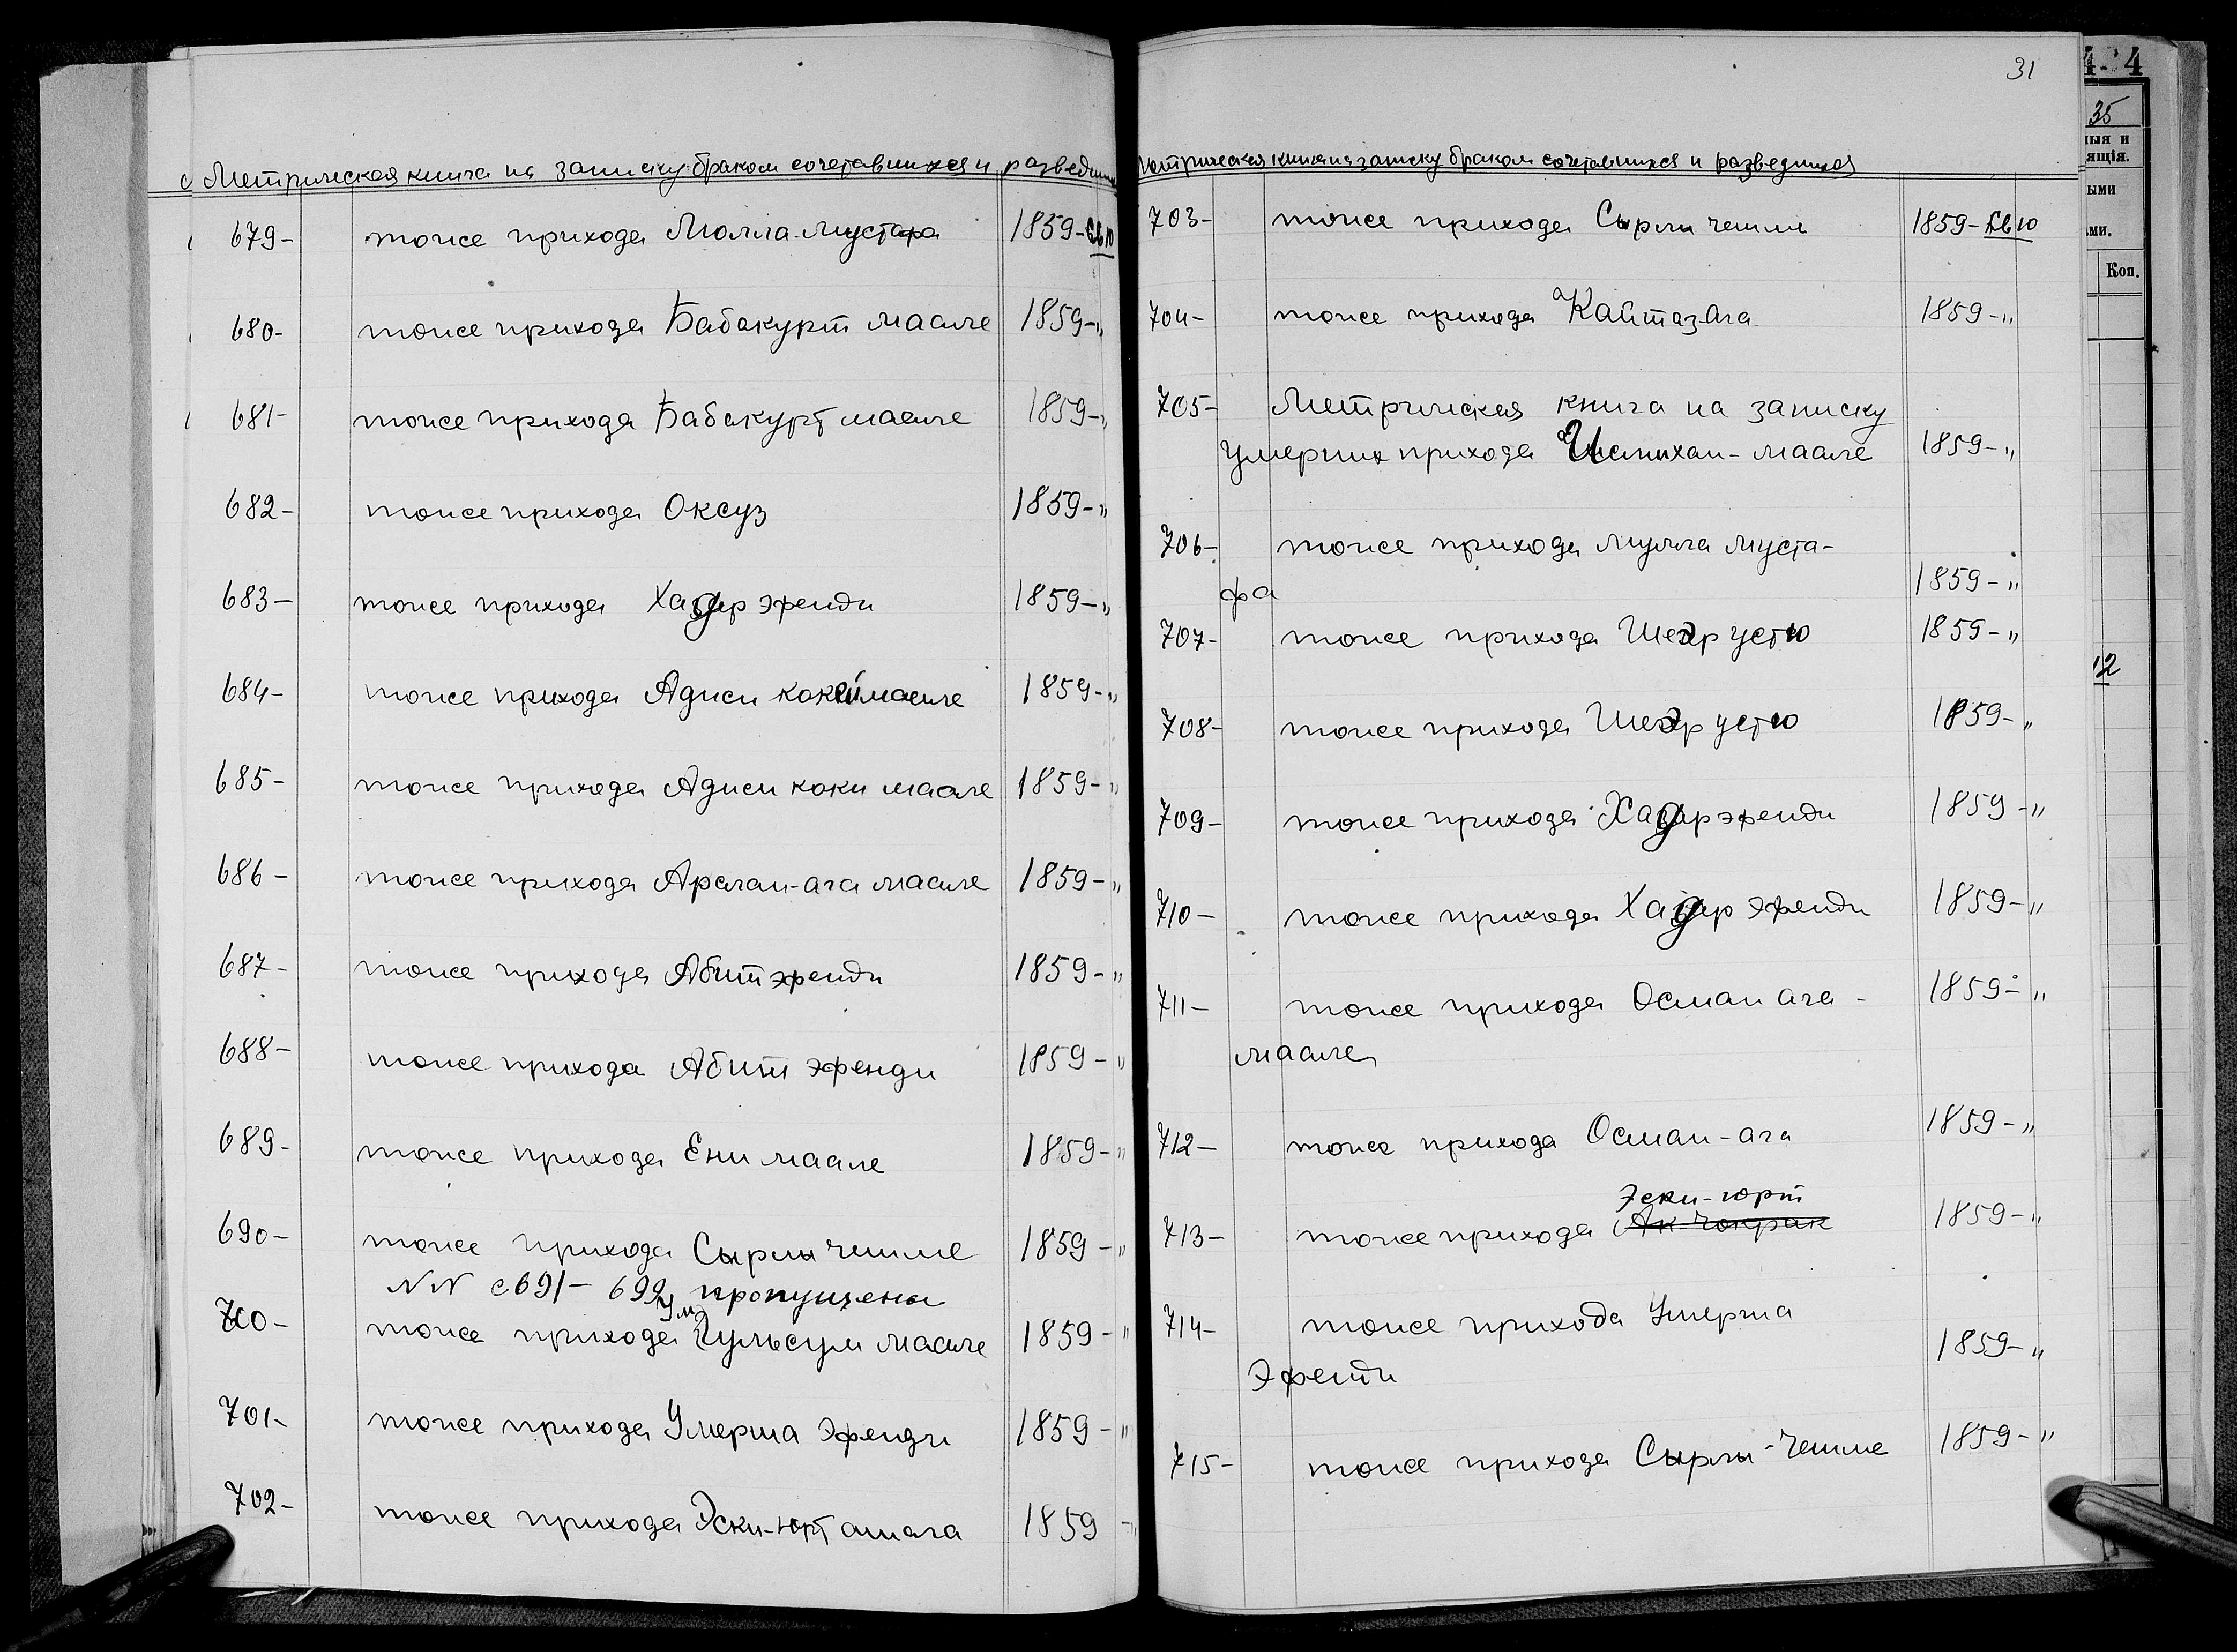 Метрическая книга на записку браком сочетавшихся и разведши
679- тоже прихода Молла-Мустафа 1859-Св ю
680- тоже прихода Бабакурт маале 1859-"
681- тоже прихода Бабакурт маале 1859-"
682- тоже прихода Оксуз 1859-"
683- тоже прихода Хадыр эфенди 1859-"
684- тоже прихода Аджи коки маале 1859-"
685- тоже прихода Аджи коки маале 1859-"
686- тоже прихода Арслан-ага маале 1859-"
687- тоже прихода Абит эфенди 1859-"
688- тоже прихода Абит эфенди 1859-"
689- тоже прихода Ени маале 1859-"
690- тоже прихода Сырлы чешме 1859-"
NN с 691-699 пропущены
Ум
700- тоже прихода Гульсум маале 1859-"
701- тоже прихода Умерша Эфенди 1859-"
702- тоже прихода Эски-юрт ашага 1859-"
31
Метрическая книга на записку браком сочетавшихся и разведшихся
703- тоже прихода Сырлы чешме 1859-Св ю
704- тоже прихода Кайтаз-Ага 1859-"
705- Метрическая книга на записку
умерших прихода Исмихан-маале 1859-"
706- тоже прихода мулла муста-
фа 1859-"
707- тоже прихода Шеэр устю 1859-"
708- тоже прихода Шеэр устю 1859-"
709- тоже прихода Хадыр эфенди 1859-"
710- тоже прихода Хадыр эфенди 1859-"
711- тоже прихода Осман ага- 1859-"
маале
712- тоже прихода Осман-ага 1859-"
Эски-юрт
713- тоже прихода Ак-Чокрак 1859-"
714- тоже прихода Умерша
Эфенди 1859-"
715- тоже прихода Сырлы-Чешме 1859-"
4
35
ыя и
ящія.
ыми
ми.
Коп.
12